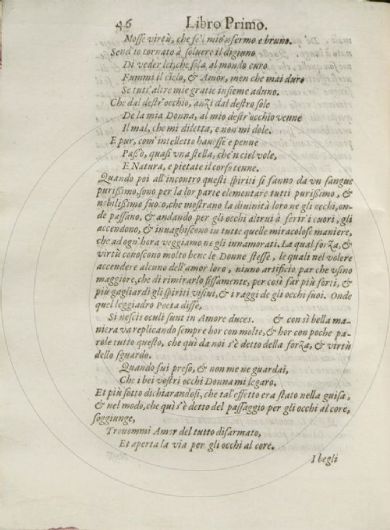 46 Libro Primo.
Mosse virtù, che fè 'l mio infermo e bruno.
Send' io tornato à soluere il digiuno
Di veder lei, che sola al mondo curo
Fummi il cielo, & Amor, men che mai duro
Se tutt' altre mie gratie insieme aduno.
Che dal destr' occhio, anzi dal destro sole
De la mia Donna, al mio destr' occhio venne
Il mal, che mi diletta, e non mi dole.
E pur, com' intelletto hauesse e penne
Passò, quasi vna stella, che 'n ciel vole,
E Natura, e pietate il corso tenne.
Quando poi all'incontro questi spiriti si fanno da vn sangue
purissimo, sono per la lor parte elementare tutti purissimo, &
nobilissimo fuoco, che mostrano la diuinità loro ne gli occhi, on-
de passano, & andando per gli occhi altrui à ferir' i cuori, gli
accendono, & innaghiscono in tutte quelle miracolose maniere,
che ad ogn' hora veggiamo ne gli innamorati. La qual forza, &
virtù conoscono molto bene le Donne stesse, le quali nel volere
accendere alcuno dell'amor loro, niuno artificio par che vsino
maggiore, che di rimirarlo fissamente, per così far più forti, &
più gagliardi gli spiriti visiui, & i raggi de gli occhi suoi. Onde
quel leggiadro Poeta disse,
Si nescis oculi sunt in Amore duces. & con sì bella ma-
niera va replicando sempre hor con molte, & hor con poche pa-
role tutto questo, che qui da noi s'è detto della forza, & virtù
dello sguardo.
Quando fui preso, & non me ne guardai,
Che i bei vostri occhi Donna mi legaro,
Et più sotto dichiarandosi, che tal effetto era stato nella guisa,
& nel modo, che qui s'è detto del passaggio per gli occhi al core,
soggiunge,
Trouommi Amor del tutto disarmato,
Et aperta la via per gli occhi al core.
I begli